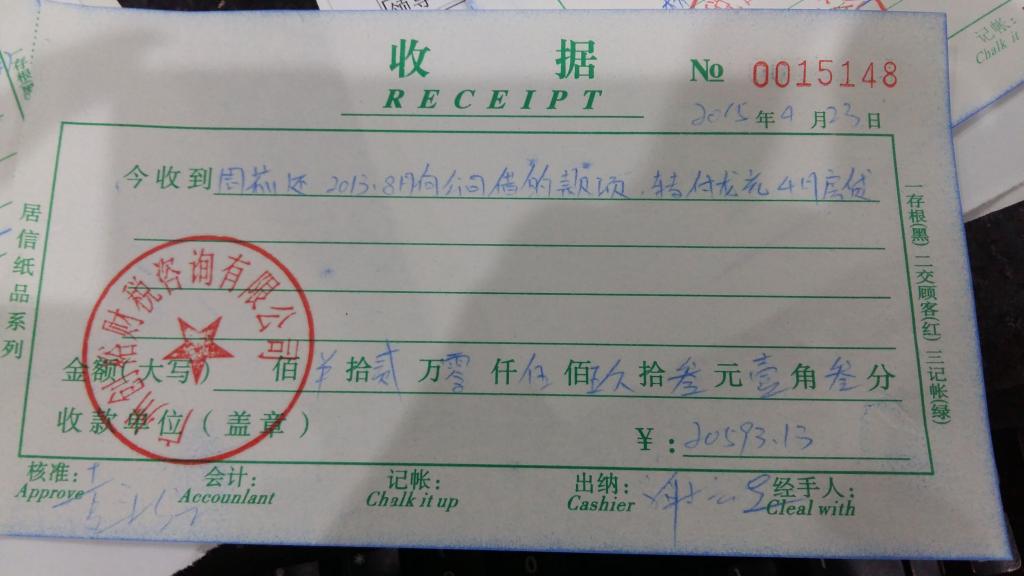 收 据
RECEIPT
No 0015148
2015年4月23日
今收到周 还 2013.8月向公司借的款项,转付龙 4月房贷
金额(大写) 佰 拾贰万零仟伍佰玖拾叁元壹角叁分
收款单位(盖章) ¥:20593.13
核准: 会计: 记帐: 出纳: 经手人:
Approve Accountant Chalk it up Cashier Cleal with
居信纸品系列
一存根(黑)二交顾客(红)三记帐(绿)
财税咨询有限公司
记帐:
Chalk it